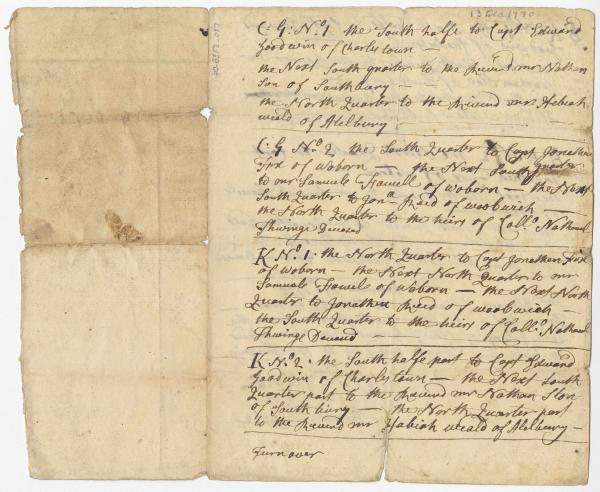 13 Dec 1730
C: G: No 1 the South halfe to Capt Edward
Goodwin of Charlestown —
the Next South quarter to the Reuend mr Nathan
Ston of Southbury —
the North Quarter to the Reuend mr Habiah
weald of Atelbury —
C: G No 2 the South Quarter to Capt Jonathan
Fox of woborn — the Next South quarter
to mr Samuel of woborn — the Next
South Quarter to Jona Reed of woolwich —
the North Quarter to the heirs of Collo Nathanel
Thwinge Deceasd
K No 1 . the North Quarter to Capt Jonathan Fox
of woborn — the Next North Quarter to mr
Samuel of woborn — the Next North
Quarter to Jonathan Reed of woolwich —
the South Quarter to the heirs of Collo Nathanel
Thwinge Deceasd —
K No 2 . the South halfe part to Capt Edward
Goodwin of Charlestown — the Next South
Quarter part to the Reuend mr Nathan Ston
of Southbury — the North Quarter part
to the Reuend mr Habiah weald of Atelbury —
Turn over